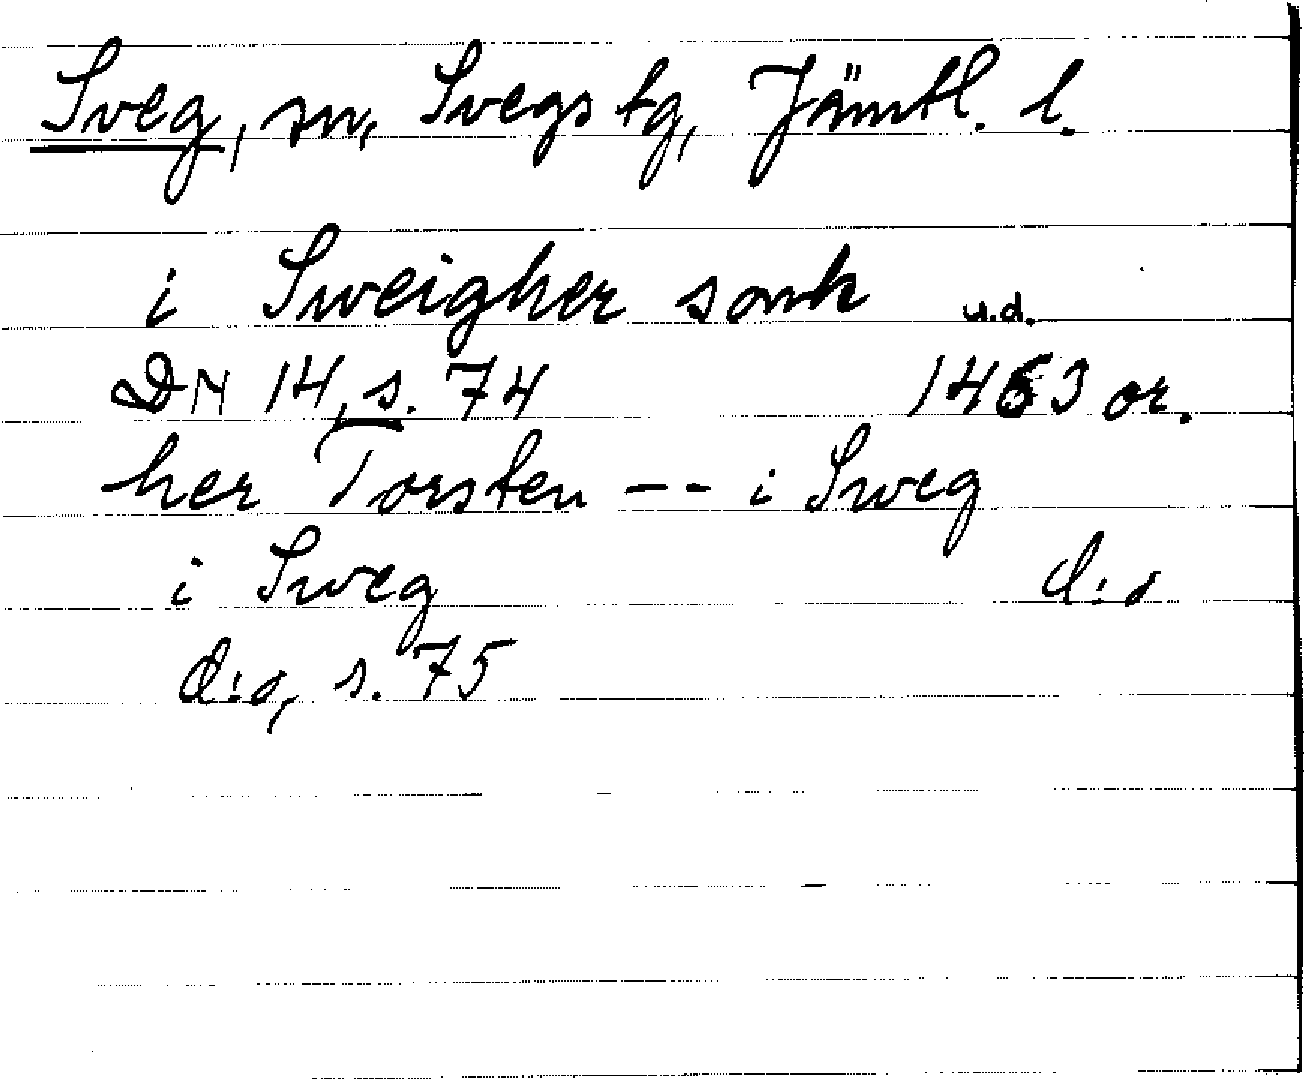 Sveg, sn, Svegs tg, Jämtl. l.
i Sweigher sonk u.d.
DN 14, s. 74 1463 or.
her Torsten -- i Sweg
i Sweg d:o
d:o, s. 75